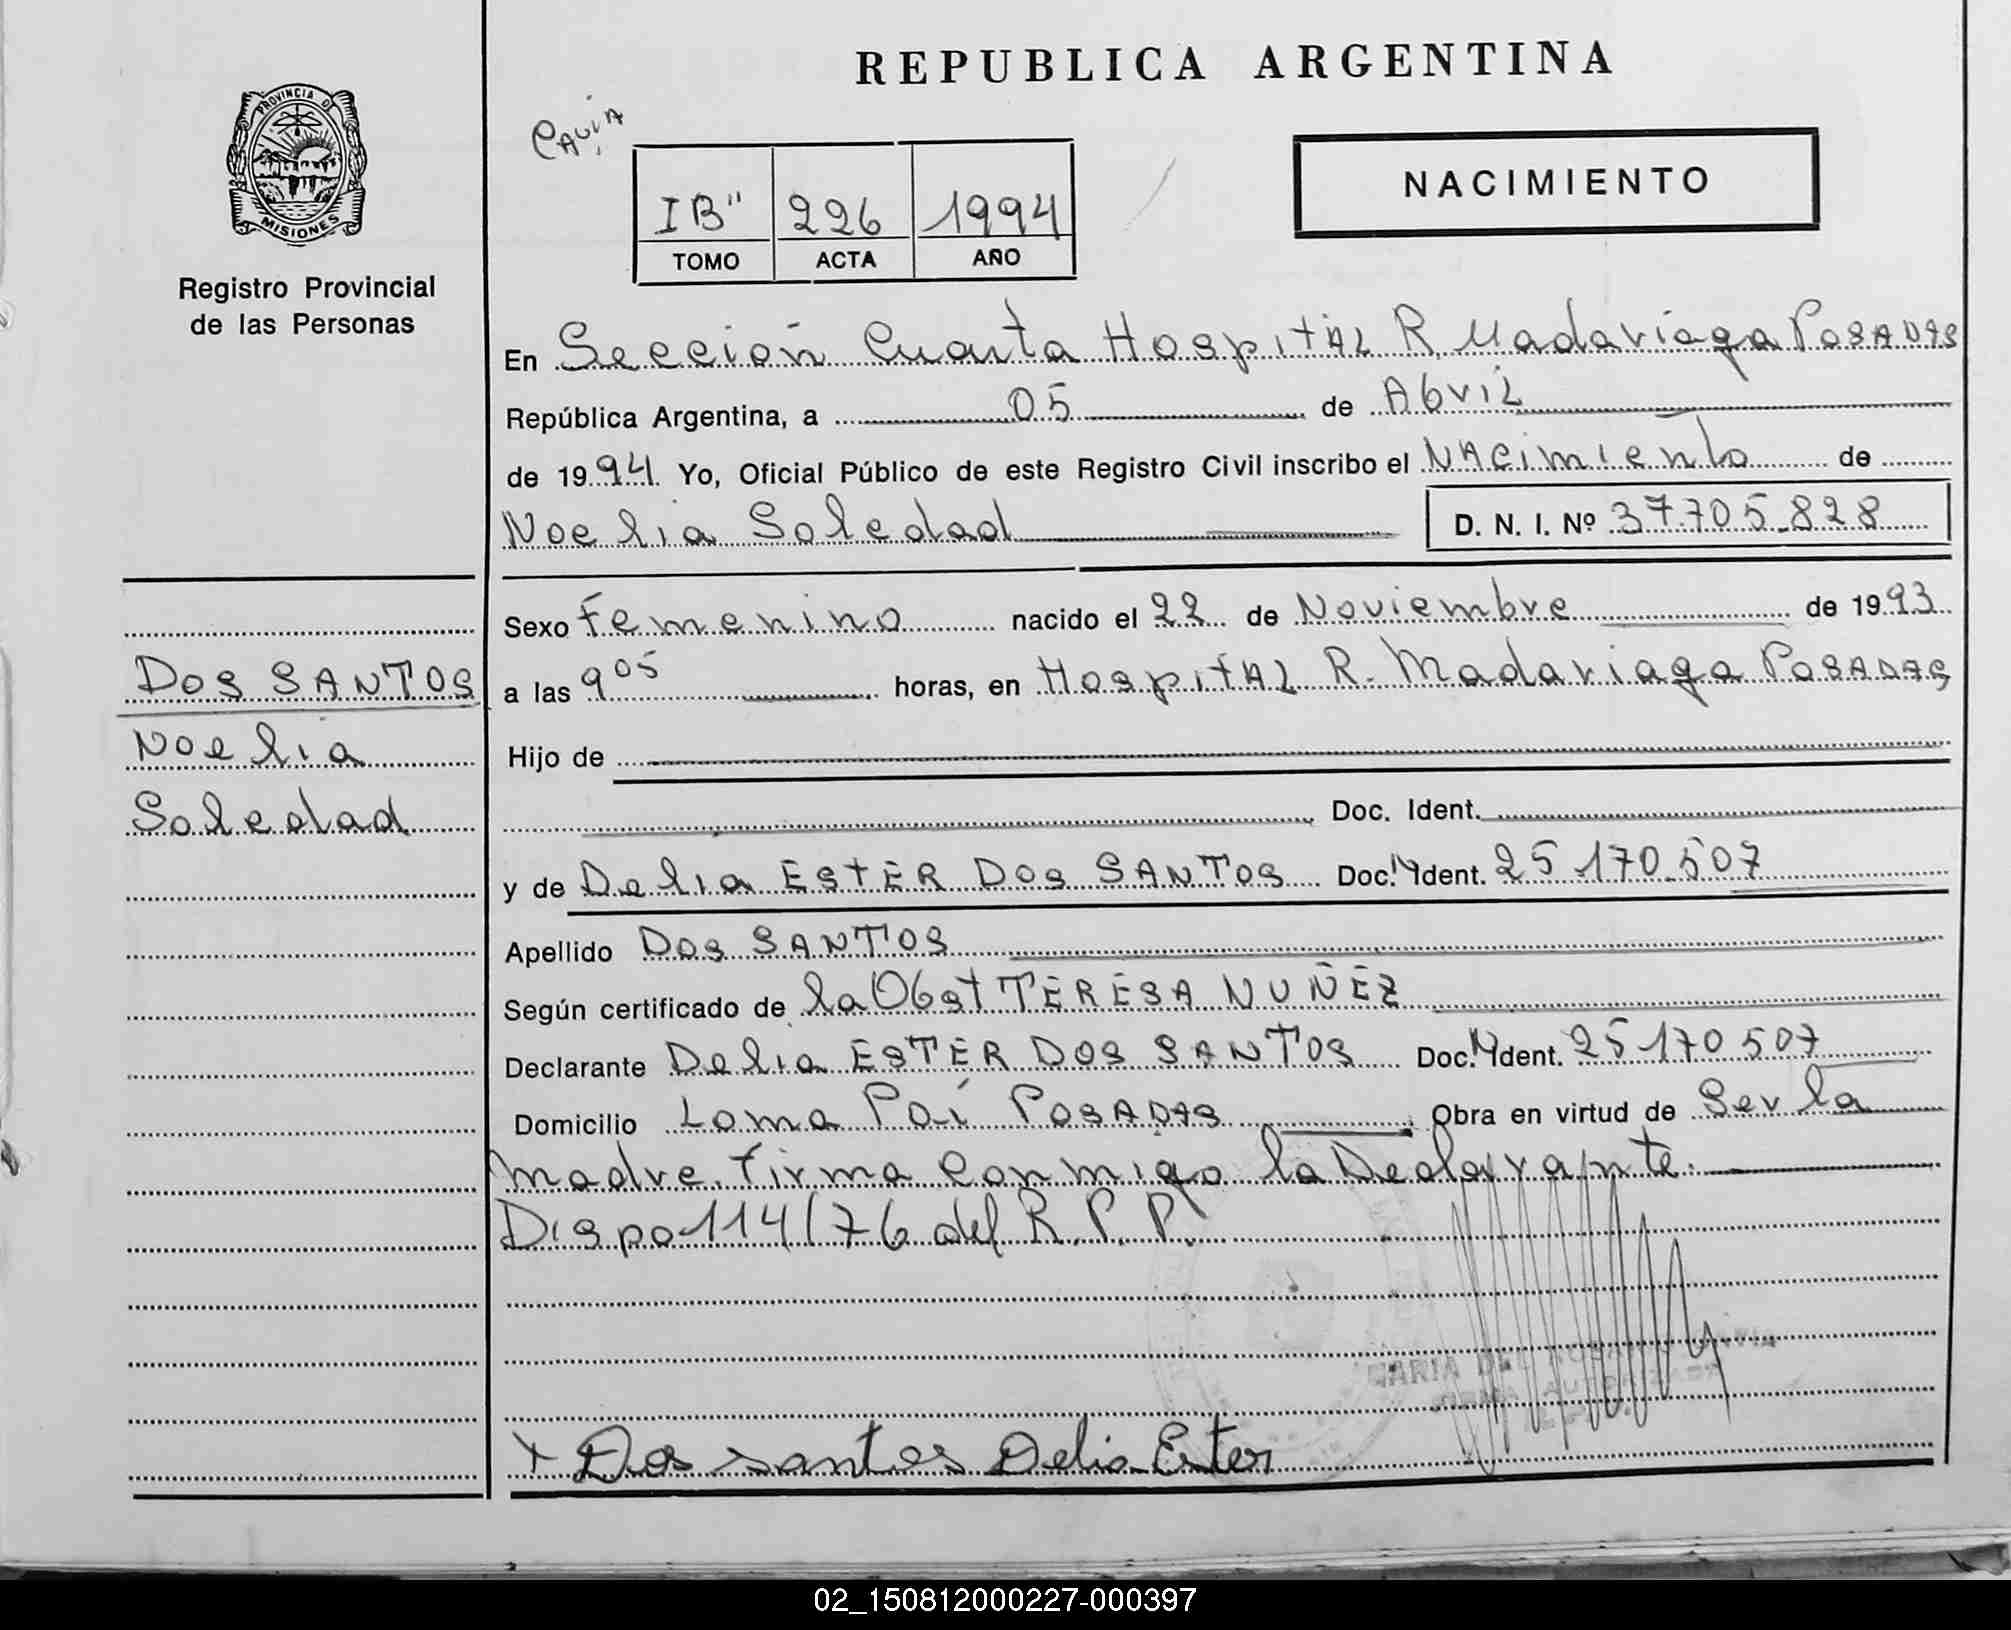 REPUBLICA ARGENTINA
PROVINCIA D
MISIONES
Registro Provincial
de las Personas
NACIMIENTO
IB" 226 1994
TOMO ACTA AÑO
En Sección Cuarta Hospital R. Madariaga Posadas
República Argentina, a 05 de Abril
de 1994. Yo, Oficial Público de este Registro Civil inscribo el Nacimiento de
Noelia Soledad D. N. I. Nº 37.705.828
Sexo Femenino nacido el 22 de Noviembre de 1993
DOS SANTOS
Noelia
Soledad
a las 9 05 horas, en Hospital R. Madariaga Posadas
Hijo de
Doc. Ident.
y de Delia ESTER DOS SANTOS Doc. N Ident. 25.170.507
Apellido DOS SANTOS
Según certificado de la Obst TERESA NUÑEZ
Declarante Delia ESTER DOS SANTOS Doc. N Ident. 25170507
Domicilio Loma Poí Posadas Obra en virtud de Ser la
madre. Firma Conmigo la Declarante.
Dispo 114/76 del R.P.P.
MARIA DEL
x Dos santos Delia Ester
02_150812000227-000397